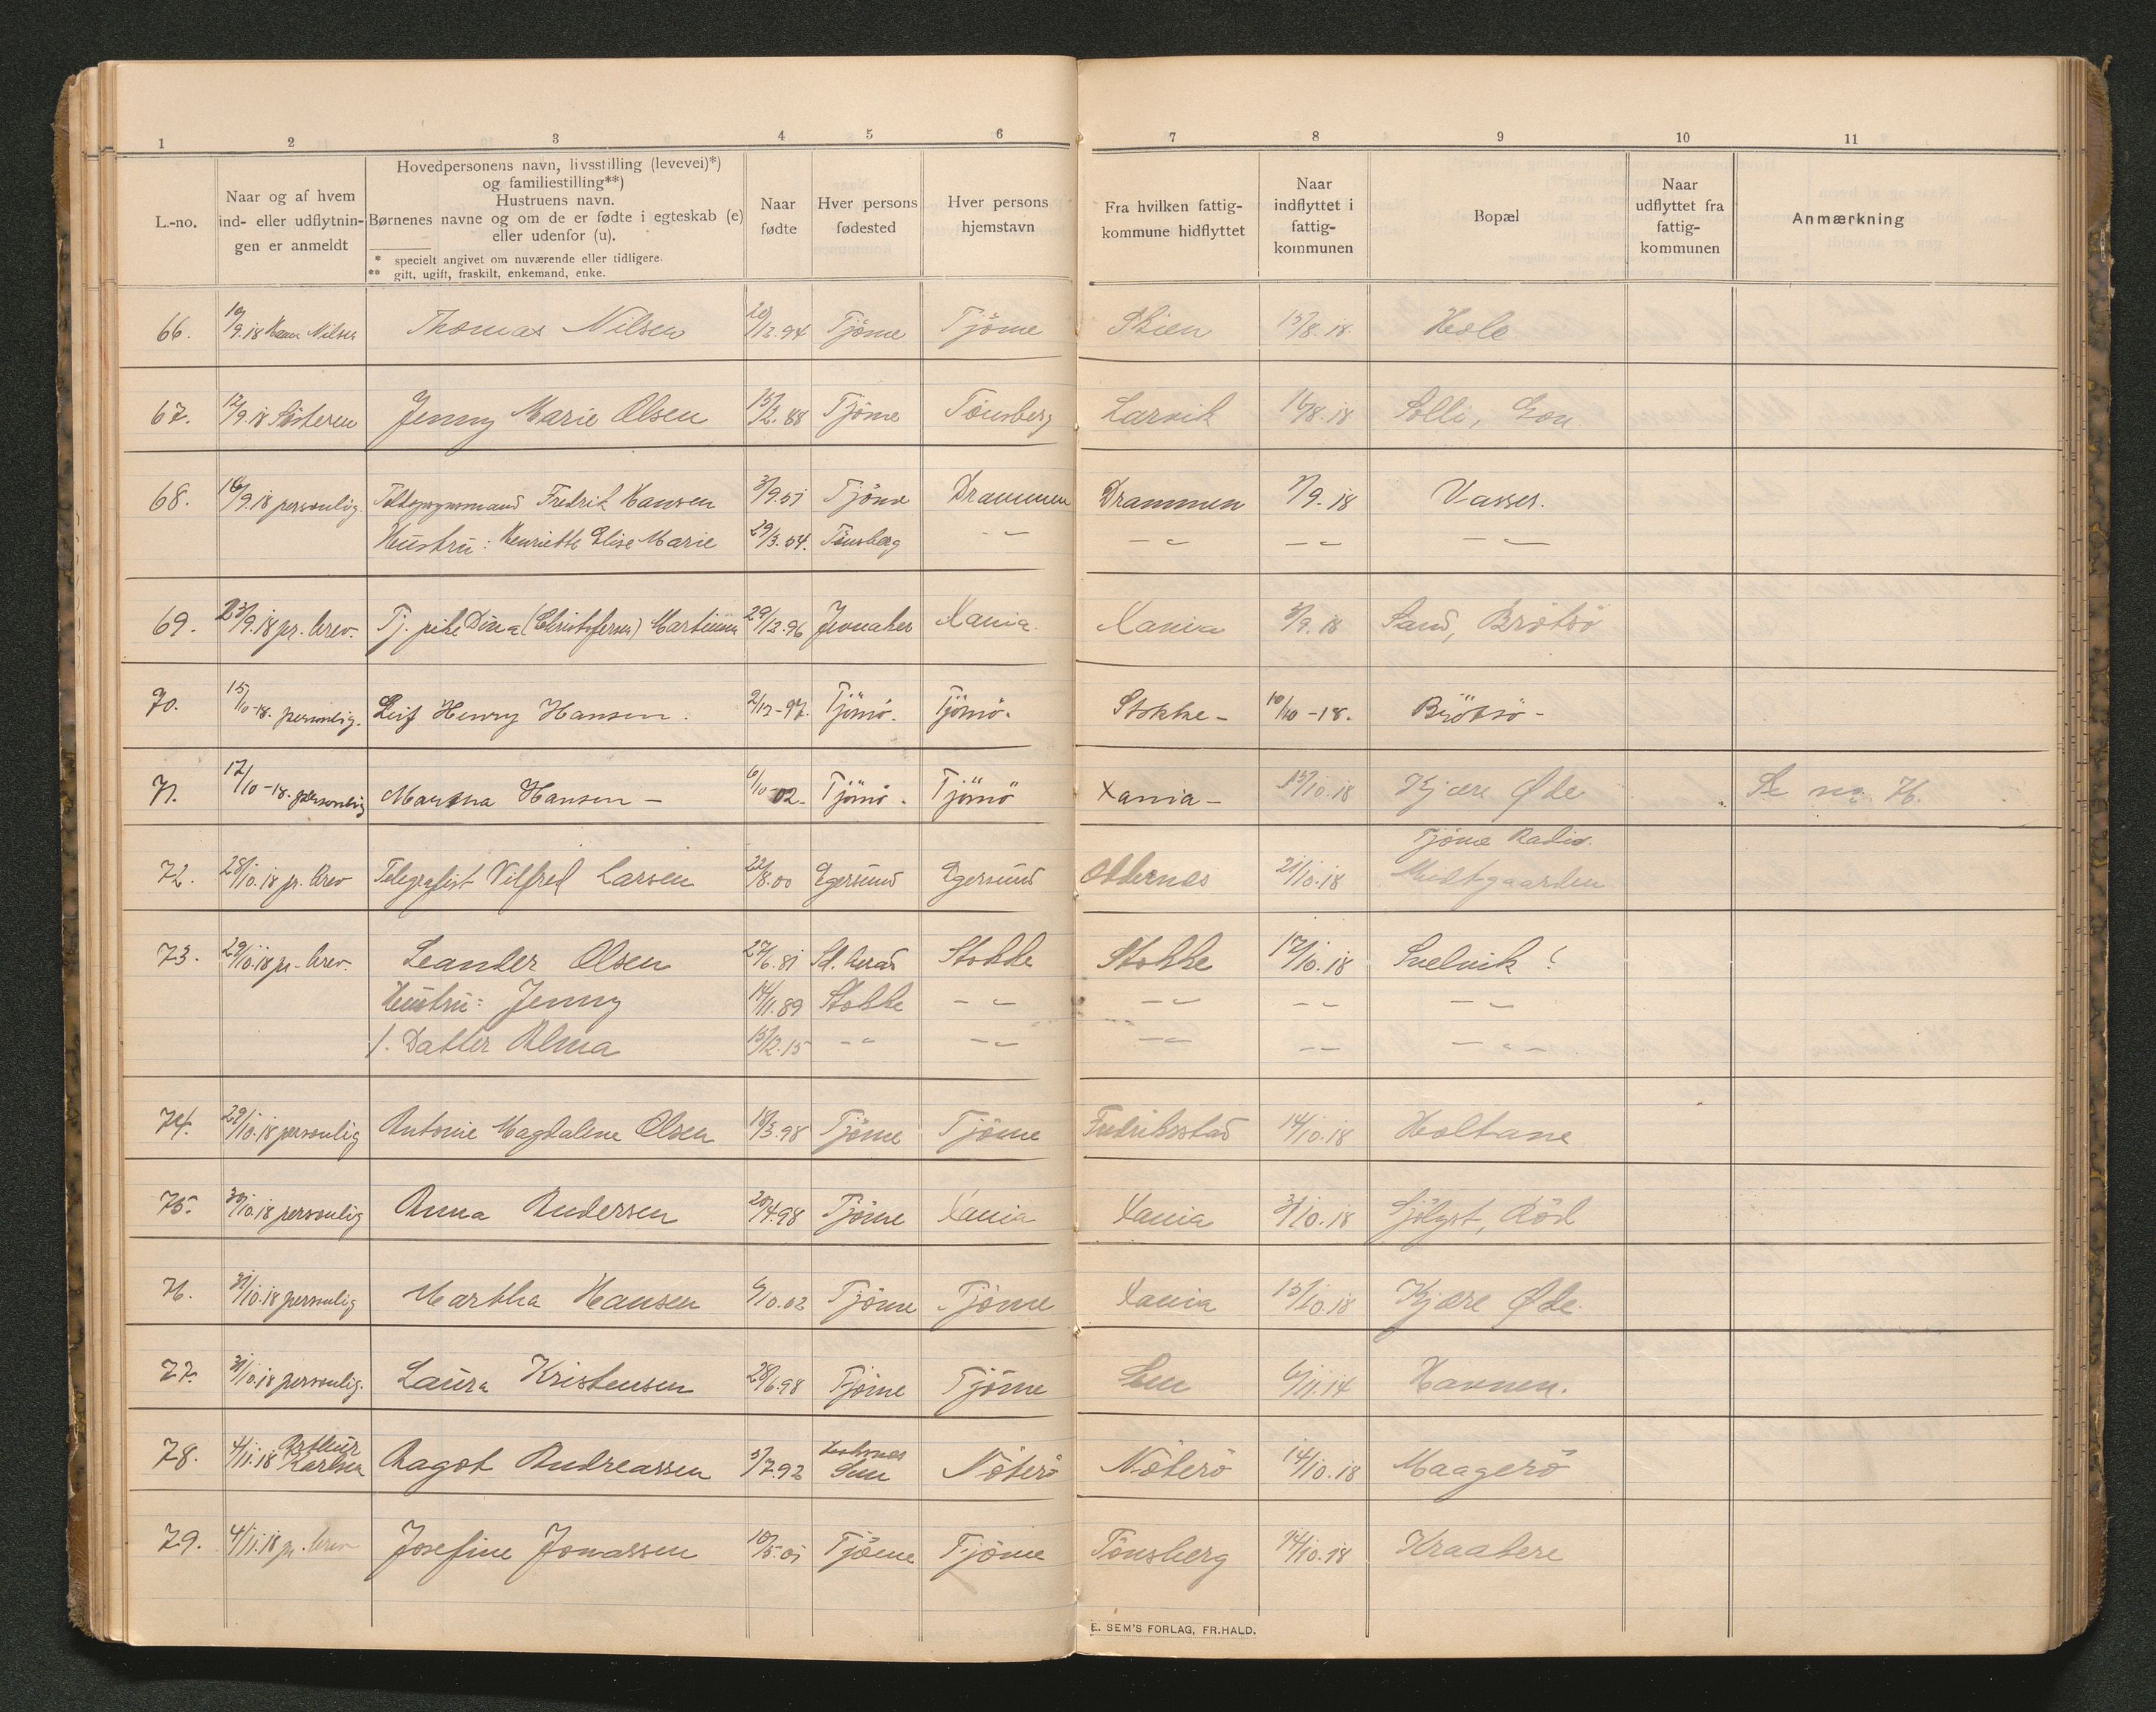 1 2 3 4 5 6 7 8 9 10 11
L.-no.
Naar og af hvem
ind- eller udflytnin-
gen er anmeldt
Hovedpersonens navn, livsstilling (levevei)*)
og familiestilling**)
Hustruens navn.
Børnenes navne og om de er fødte i egteskab (e)
eller udenfor (u).
* specielt angivet om nuværende eller tidligere.
** gift, ugift, fraskilt, enkemand, enke.
Naar
fødte
Hver persons
fødested
Hver persons
hjemstavn
Fra hvilken fattig-
kommune hidflyttet
Naar
indflyttet i
fattig-
kommunen
Bopæl
Naar
udflyttet fra
fattig-
kommunen
Anmærkning
66. 10/9.18 Nilsen Thomas Nilsen 20/12.94 Tjöme Tjöme Skien 15/8.18. Hole
67. 12/9.18 Søsteren Jenny Marie Olsen 15/2.88 Tjöme Tönsberg Larvik 16/8.18 Solli,
68. 16/9.18 personlig. Fredrik Hansen 3/9.51 Tjöme Drammen Drammen 7/9.18 Vasser.
Hustru: Henriette Elise Marie 29/3.54. Tönsberg - " - " - " - "
69. 23/9.18 pr. brev. Tj. pike Dina (Christofersen) Martinsen 29/12.96 Jevnaker Xania. Xania 3/9.18 Sand, Brötsö
70. 15/10-18. personlig. Leif Henry Hansen. 2/12-97. Tjömö. Tjömö. Stokke - 10/10-18. Brötsö -
71. 17/10-18. personlig Martha Hansen - 6/10-02- Tjömö. Tjömö Xania - 15/10.18 Kjære Øde Se no. 76.
Tjöme Radio.
72. 28/10.18 pr. brev Telegrafist Vilfred Larsen 22/8.00 Egersund Egersund Oddernes 21/10.18 Midtgaarden
73. 29/10.18 pr. brev. Leander Olsen 27/6.81 Sd. herad Stokke Stokke 17/10.18 Svelvik!
Hustru: Jenny 14/11.89 Stokke - " - " - " - "
1. Datter Alma 15/12.15 - " - " - " - " - " -
74. 29/10.18 personlig Antonie Magdalene Olsen 18/3.98 Tjöme Tjöme Fredriksstad 14/10.18 Holtane
75. 30/10.18 personlig Anna Andersen 20/4.98 Tjöme Xania Xania 3/10.18 Sjölyst, Röd
76. 31/10.18 personlig Martha Hansen 6/10.02 Tjöme Tjöme Xania 15/10.18 Kjære Øde.
77. 31/10.18 personlig. Laura Kristensen 28/6.98 Tjöme Tjöme Sem 6/11.14 Havnen.
78. 4/11.18 Arthur Karlsen Ragot Andreassen 5/7.92 Sem Nöterö Nöterö 14/10.18 Maagerö
79. 4/11.18 pr. brev Josefine Jonassen 10/5.01 Tjöme Tjöme Tönsberg 14/10.18 Kraakere
E. SEM'S FORLAG, FR.HALD.